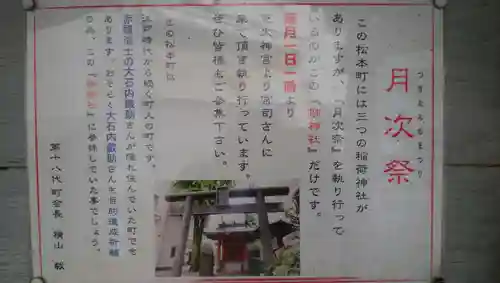 月次祭
この松本町には三つの稲荷神社が
ありますが、『月次祭』を執り行って
いるのがこの『御神社』だけです。
毎月一日十一時より
神宮より宮司さんに
来て頂き執り行っています。
ぜひ皆様もご参集下さい。
この松本町は
江戸時代から続く町人の町です。
赤穂浪士の大石内蔵助さんが隠れ住んでいた町でも
あります。おそらく大石内蔵助さんも目的達成祈願
の為、この『神社』に参拝していた事でしょう。
第十八代町会長 横山